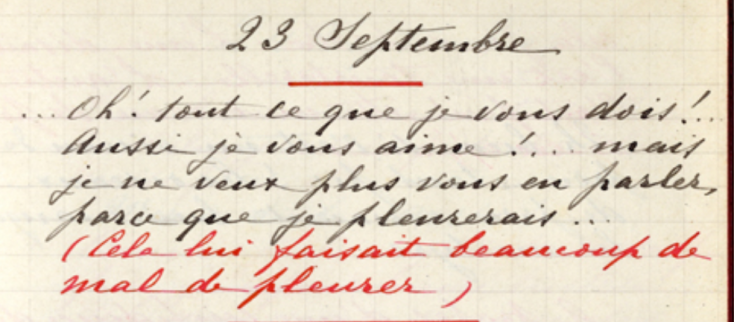 23 Septembre
... Oh! tout ce que je vous dois!...
Aussi je vous aime!... mais
je ne veux plus vous en parler,
parce que je pleurerais...
(Cela lui faisait beaucoup de
mal de pleurer)